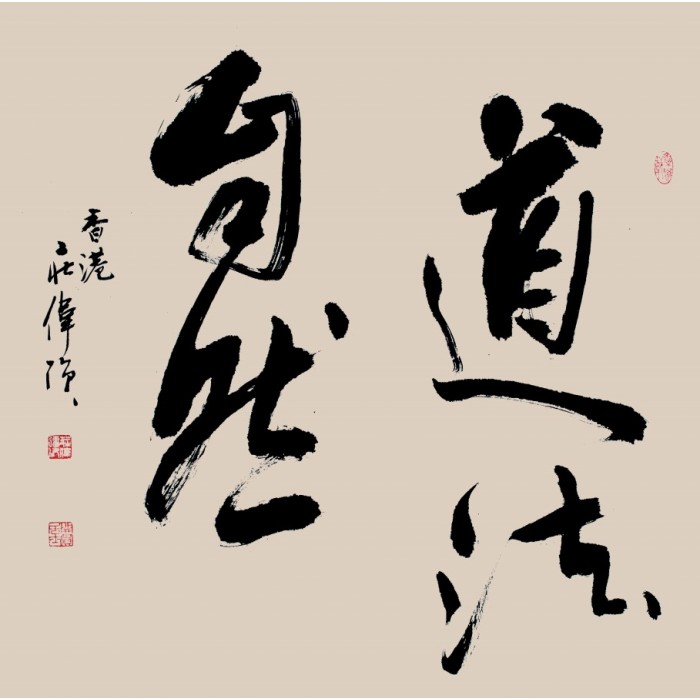 道法
自然
香港
莊偉